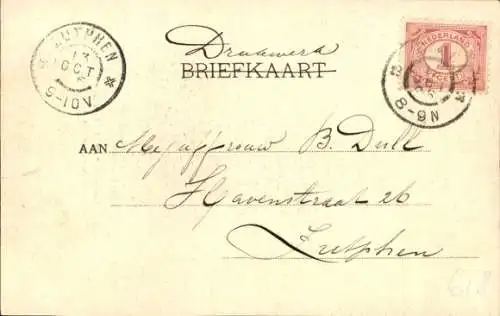 Drukwerk
BRIEFKAART
ZUTPHEN
14
OCT
9-10V
NEDERLAND
1
CENT
8-9N
AAN Mejuffrouw B. Dull
Havenstraat 26
Zutphen
618